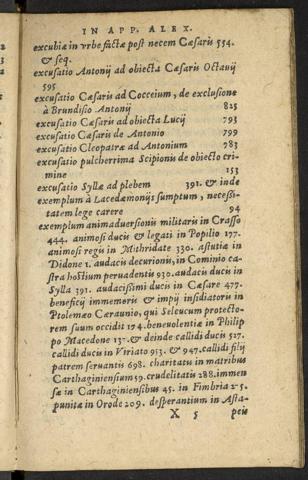 IN APP. ALEX.
excubiæ in vrbe factæ post necem Cæsaris 554.
& seq.
excusatio Antonij ad obiecta Cæsaris Octauij
595
excusatio Cæsaris ad Cocceium, de exclusione
à Brundisio Antonij 825
excusatio Cæsaris ad obiecta Lucij 793
excusatio Cæsaris de Antonio 799
excusatio Cleopatræ ad Antonium 783
excusatio pulcherrima Scipionis de obiecto cri
mine 153
excusatio Syllæ ad plebem 391. & inde
exemplum à Lacedæmonijs sumptum, necessi-
tatem lege carere 94
exemplum animaduersionis militaris in Crasso
444. animosi ducis & legati in Popilio 177.
animosi regis in Mithridate 330. astutiæ in
Didone 1. audacis decurionis, in Cominio ca-
stra hostium peruadentis 930. audacis ducis in
Sylla 391. audacissimi ducis in Cæsare 477.
beneficij immemoris & impij insidiatoris in
Ptolemæo Cerauno, qui Seleucum protecto-
rem suum occidit 174. beneuolentiæ in Philip
po Macedone & deinde callidi ducis 527.
callidi ducis in Viriato 913. & 947. callidi filij
patrem seruantis 698. charitatis in matribus
Carthaginiensium 59. crudelitatis 288. immen
sæ in Carthaginensibus 45. in Fimbria
punitæ in Orode 209. desperantium in Asta-
X 5 peis